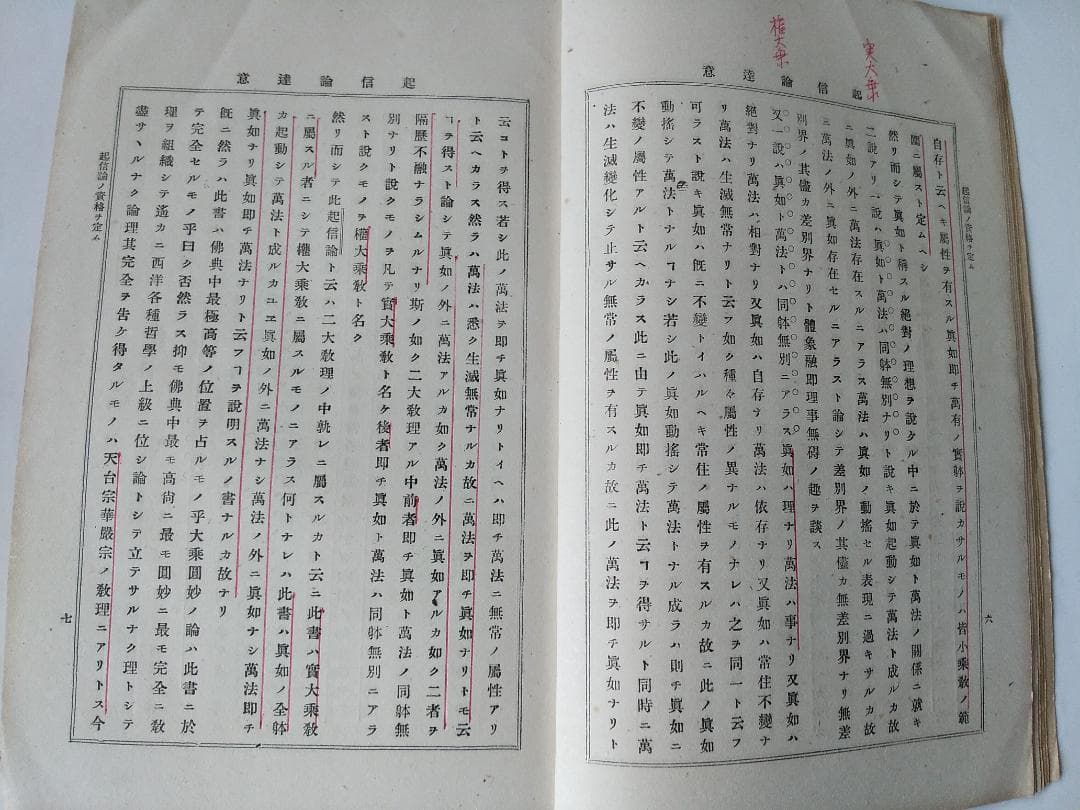 実大乗
権大乗
起信論達意
起信論ノ資格ヲ定ム
自存ト云ヘキ屬性ヲ有スル眞如即チ萬有ノ實躰ヲ說カサルモノハ皆小乘敎ノ範
圍ニ屬スト定ムヘシ
然リ而シテ眞如ト稱スル絕對ノ理想ヲ說クル中ニ於テ眞如ト萬法ノ關係ニ就キ
二說アリ一說ハ眞如ト萬法ハ同躰無別ナリト說キ眞如起動シテ萬法ト成ルカ故
ニ眞如ノ外ニ萬法存在スルニアラス萬法ハ眞如ノ動搖セル表現ニ過キサルカ故
ニ萬法ノ外ニ眞如存在セルニアラスト論シテ差別界ノ其儘カ無差別界ナリ無差
別界ノ其儘カ差別界ナリト體象融即理事無碍ノ趣ヲ談ス
又一說ハ眞如ト萬法トハ同躰無別ニアラス眞如ハ理ナリ萬法ハ事ナリ又眞如ハ
絕對ナリ萬法ハ相對ナリ又眞如ハ自存ナリ萬法ハ依存ナリ又眞如ハ常住不變ナ
リ萬法ハ生滅無常ナリト云フ如ク種々屬性ノ異ナルモノナレハ之ヲ同一ト云フ
可ラスト說キ眞如ハ既ニ不變トイハルヘキ常住ノ屬性ヲ有スルカ故ニ此ノ眞如
動搖シテ萬法トナルヿナシ若シ此ノ眞如動搖シテ萬法トナル成ラハ則チ眞如ニ
不變ノ屬性アルト云ヘカラス此ニ由テ眞如即チ萬法ト云ヿヲ得サルト同時ニ萬
法ハ生滅變化シテ止サル無常ノ屬性ヲ有スルカ故ニ此ノ萬法ヲ即チ眞如ナリト
六
起信論達意
起信論ノ資格ヲ定ム
云コトヲ得ス若シ此ノ萬法ヲ即チ眞如ナリトイヘハ即チ萬法ニ無常ノ屬性アリ
ト云ヘカラス然ラハ萬法ハ悉ク生滅無常ナルカ故ニ萬法ヲ即チ眞如ナリトモ云
ヿヲ得スト論シテ眞如ノ外ニ萬法アルカ如ク萬法ノ外ニ眞如アルカ如ク二者ヲ
隔歷不融ナラシムルナリ斯ノ如ク二大敎理アル中前者即チ眞如ト萬法ノ同躰無
別ナリト說クモノヲ凡テ實大乘敎ト名ケ後者即チ眞如ト萬法ハ同躰無別ニアラ
スト說クモノヲ權大乘敎ト名ク
然リ而シテ此起信論ト云ハ二大敎理ノ中孰レニ屬スルカト云ニ此書ハ實大乘敎
ニ屬スル者ニシテ權大乘敎ニ屬スルモノニアラス何トナレハ此書ハ眞如ノ全躰
カ起動シテ萬法ト成ルカユヱ眞如ノ外ニ萬法ナシ萬法ノ外ニ眞如ナシ萬法即チ
眞如ナリ眞如即チ萬法ナリト云フヿヲ說明スルノ書ナルカ故ナリ
既ニ然ラハ此書ハ佛典中最極高等ノ位置ヲ占ルモノ乎大乘圓妙ノ論ハ此書ニ於
テ完全セルモノ乎曰ク否然ラス抑モ佛典中最モ高尙ニ最モ圓妙ニ最モ完全ニ敎
理ヲ組織シテ遙カニ西洋各種哲學ノ上級ニ位シ論トシテ立テサルナク理トシテ
盡サヽルナク論理其完全ヲ告ケ得タルモノハ天台宗華嚴宗ノ敎理ニアリトス今
七